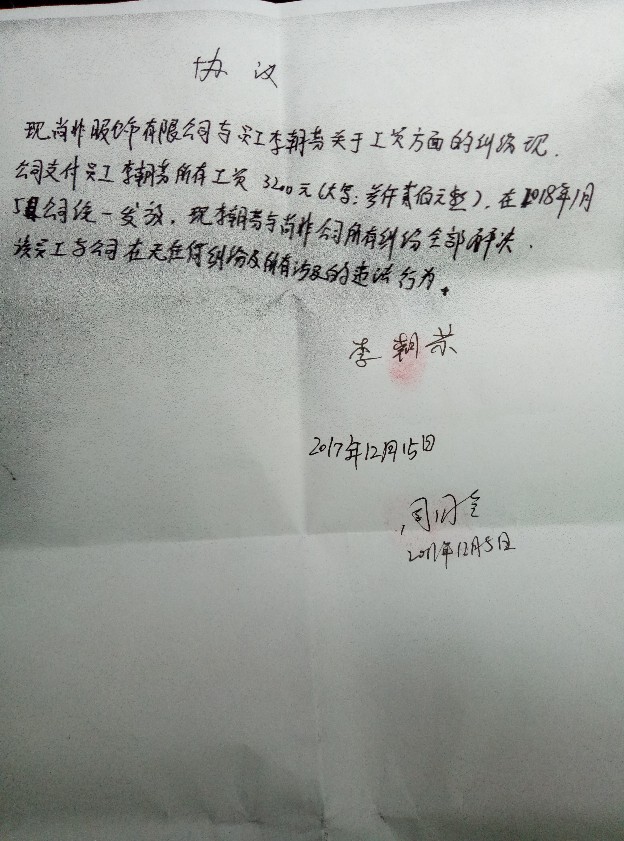 协议
现尚牛服饰有限公司与员工李朝芬关于工资方面的纠纷现.
公司支付员工李朝芬所有工资3200元(大写:叁仟贰佰元整),在2018年1月
5日公司统一发放,现李朝芬与尚牛公司所有纠纷全部解决.
该员工与公司在无任何纠纷及所有涉及的违法行为。
李朝芬
2017年12月15日
2017年12月5日